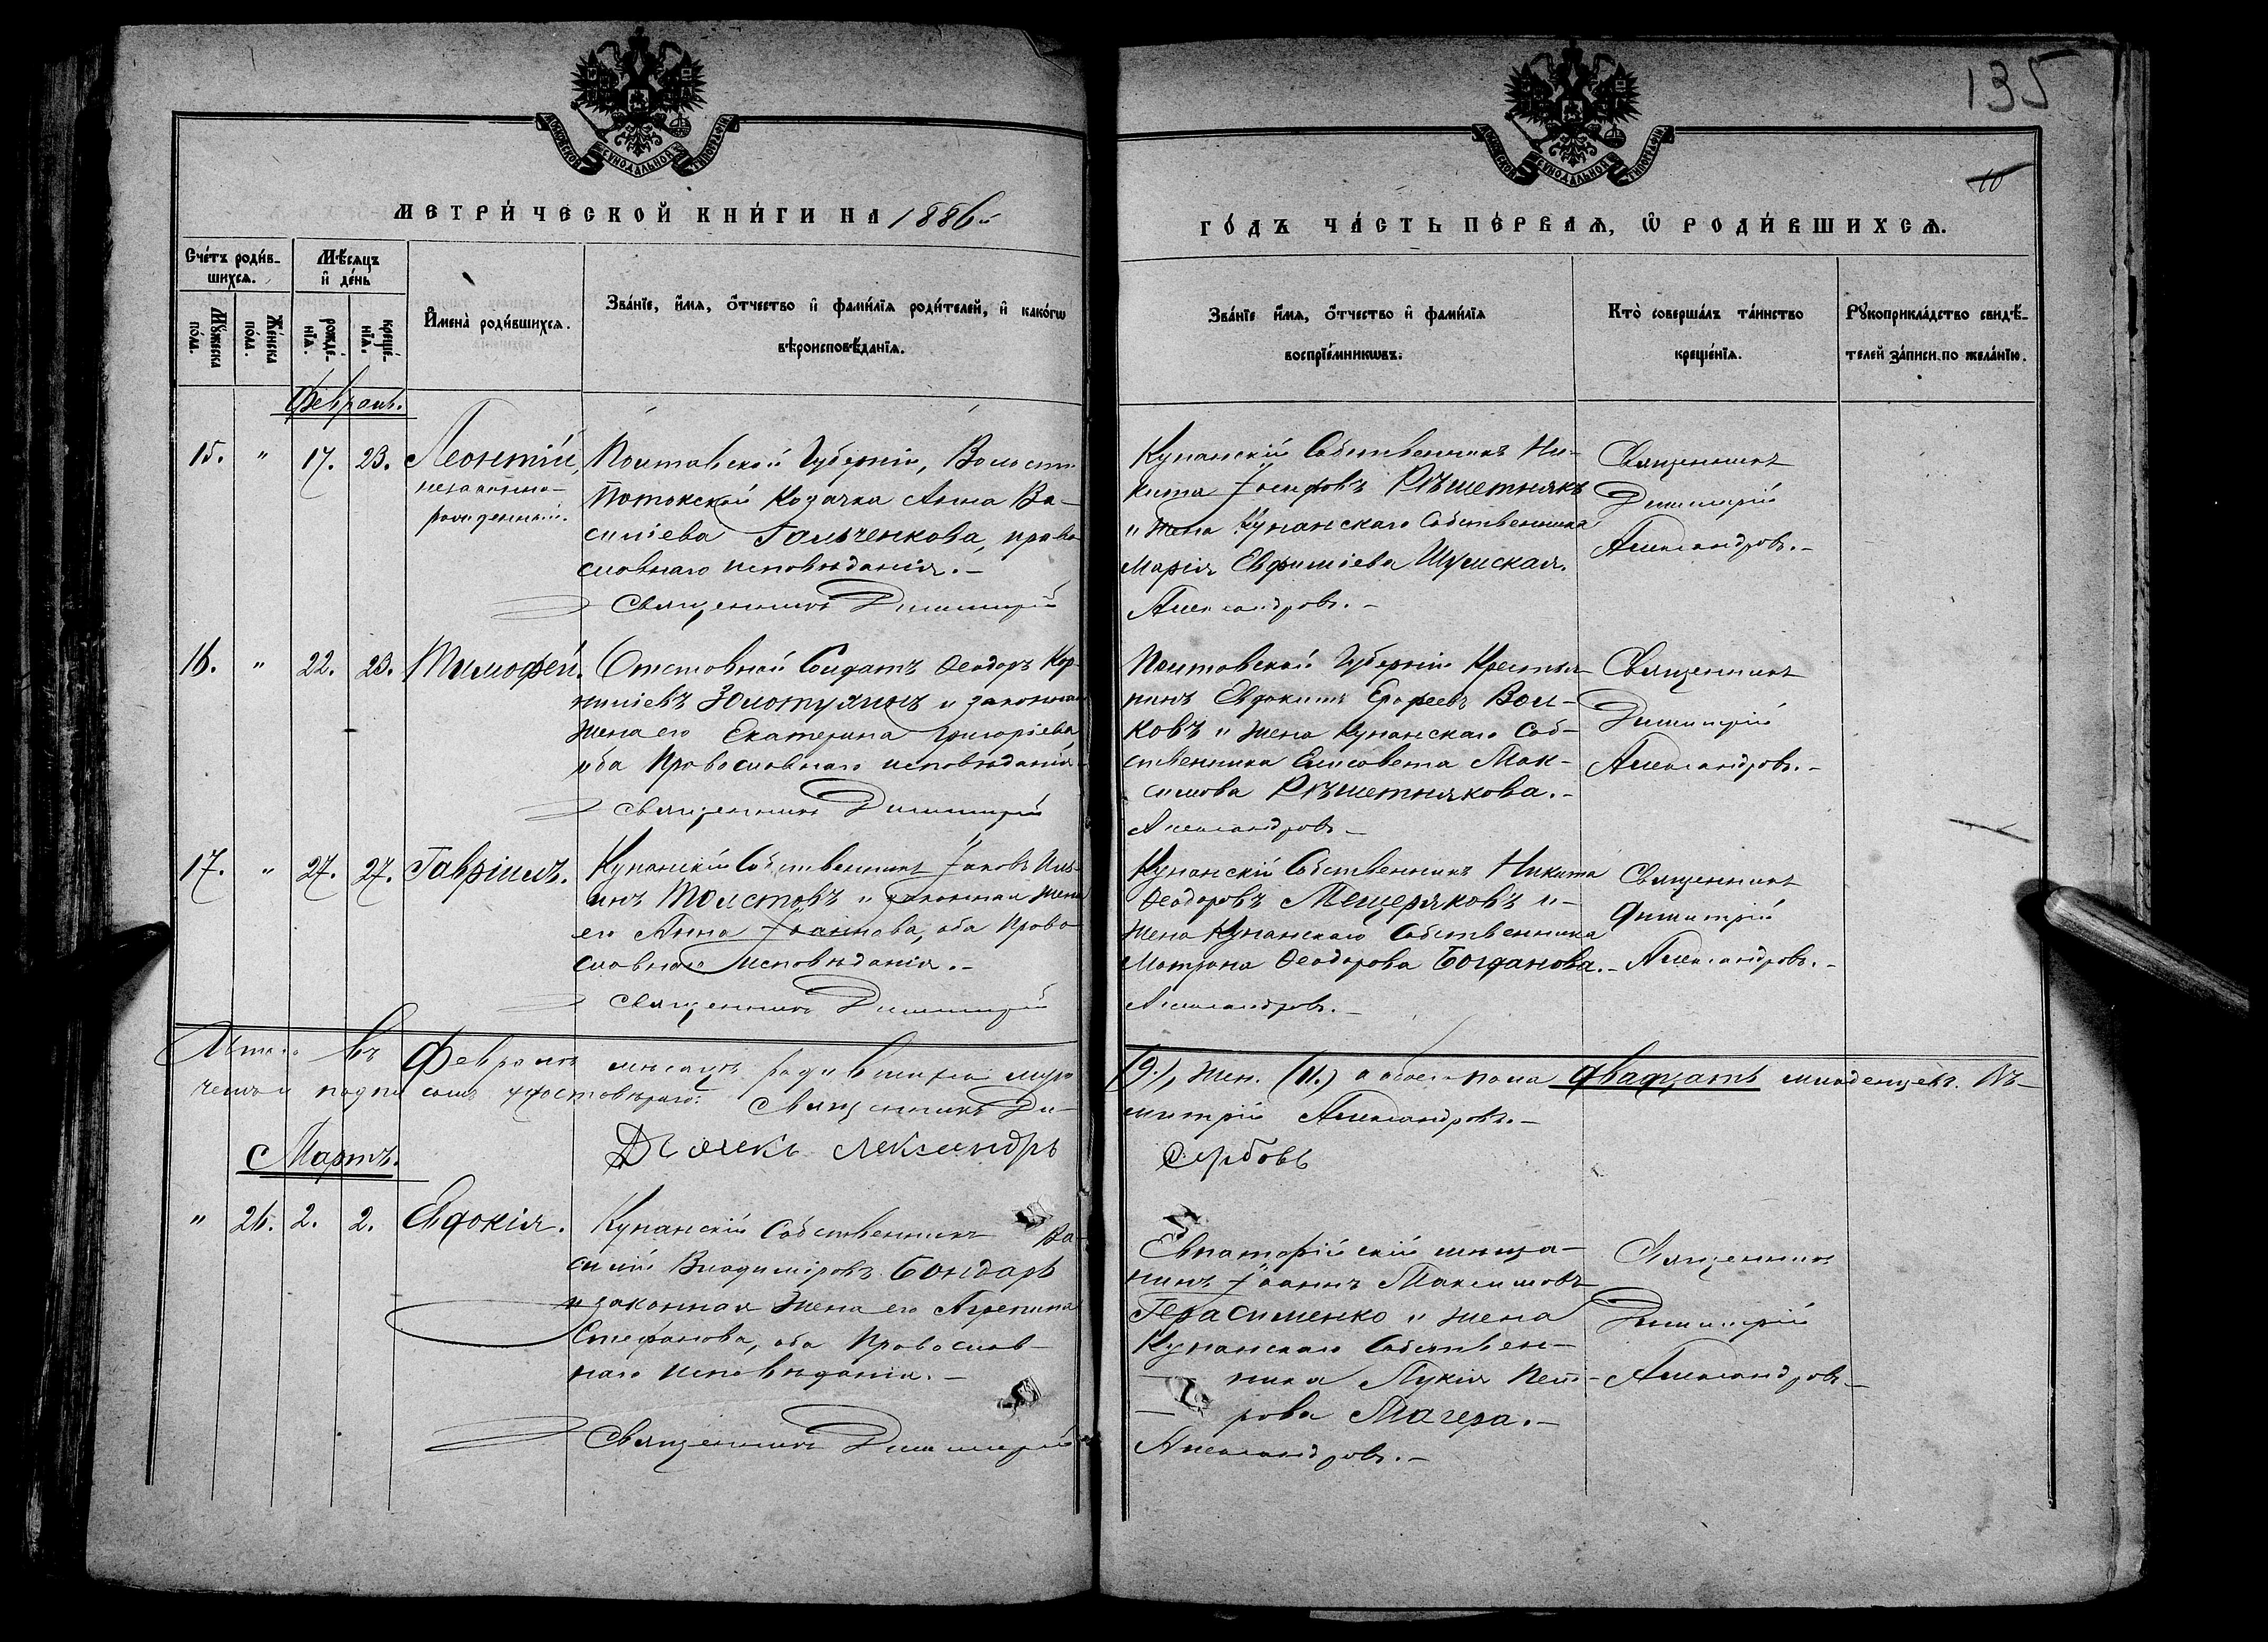 135
10
МОСКОВСКОЙ СѴНОДАЛЬНОЙ ТИПОГРАФІИ
МОСКОВСКОЙ СѴНОДАЛЬНОЙ ТИПОГРАФІИ
МЕТРИ́ЧЕСКОЙ КНИ́ГИ НА 1886й
ГО́ДЪ ЧА́СТЬ ПЕ́РВАѦ, Ѽ РОДИ́ВШИХСѦ.
Сче́тъ роди́в-
шихсѧ.
Мѣ́сѧцъ
и҆ де́нь
Мꙋ́жеска по́ла.
Же́нска по́ла.
рожде́-нїѧ.
креще́-нїѧ.
И҆мена̀ роди́вшихсѧ.
Зва́нїе, и҆́мѧ, ѻ҆́тчество и҆ фами́лїѧ роди́телей, и҆ како́гѡ
вѣроисповѣ́данїѧ.
Зва́нїе и҆́мѧ, ѻ҆́тчество и҆ фами́лїѧ
воспрїе́мникѡвъ.
Кто̀ соверша́лъ та́инство
креще́нїѧ.
Рꙋкоприкла́дство свидѣ́-
телей за́писи по жела́нїю.
Февраль.
15. " 17. 23. Леонтій
незаконно-
рожденный.
Полтавской Губерніи, Волости
Потокской Козачка Анна Ва-
силіева Гальченкова, право-
славнаго исповѣданія.-
Священникъ Димитрій
Купанскій Собственникъ Ни-
кита Іосифовъ Рѣшетнякъ
и жена Купанскаго Собственника
Марія Евфиміева Шумская.
Александровъ.-
Священникъ
Димитрій
Александровъ.-
16. " 22. 23. Тимофей.
Отставной Солдатъ Ѳеодоръ Кор-
ниліевъ Золотухинъ и законная
жена его Екатерина Григоріева
оба Православнаго исповѣданія-
Священникъ Димитрій
Полтавской Губерніи Крестья-
нинъ Евдокимъ Ерофеевъ Вол-
ковъ и жена Купанскаго Соб-
ственника Елисавета Мак-
симова Рѣшетнякова.-
Александровъ-
Священникъ
Димитрій
Александровъ.-
17. " 27. 27. Гавріилъ.
Купанскій Собственникъ Іаковъ Иль-
инъ Толстовъ и законная жена
его Анна Іоаннова, оба Право-
славнаго исповѣданія.-
Священникъ Димитрій
Купанскій Собственникъ Никита
Ѳеодоровъ Мещеряковъ и-
жена Купанскаго Собственника
Матрона Ѳеодорова Богданова.-
Александровъ.-
Священникъ
Димитрій
Александровъ.-
Итого въ Февралѣ мѣсяцѣ родившихся муж.
(9.), жен. (11.) а обоего пола двадцать младенцевъ. Въ-
чемъ и подписомъ удостовѣряю: Священникъ Ди-
митрій Александровъ.-
Дьячекъ Александръ
Сербовъ
Мартъ.
" 26. 2. 2. Евдокія.
Купанскій Собственникъ Ва-
силій Владиміровъ Бондарь
и законная жена его Агрепина
Стефанова, оба Православ-
наго исповѣданія.-
Священникъ Димитрій
Евпаторійскій мѣща-
нинъ Іоаннъ Максимовъ
Герасименко и жена
Купанскаго Собствен-
ника Лукія Пет-
рова Магера.-
Александровъ.-
Священникъ
Димитрій
Александровъ-